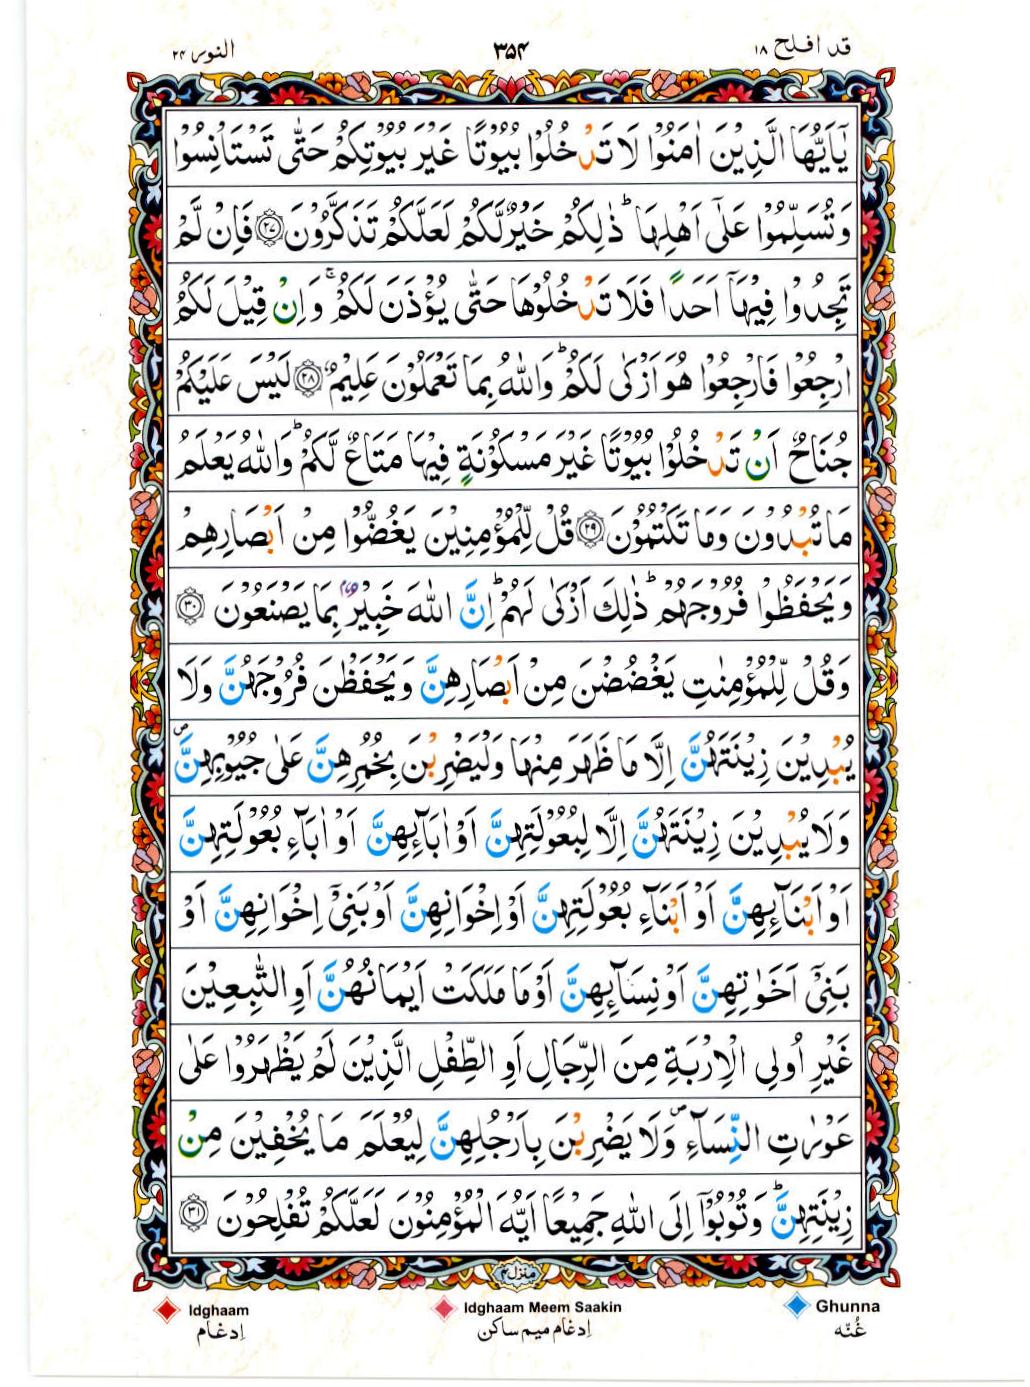 النور ٢٤
٣٥٤
قد افلح ١٨
يٰۤاَيُّهَا الَّذِيْنَ اٰمَنُوْا لَا تَدْخُلُوْا بُيُوْتًا غَيْرَ بُيُوْتِكُمْ حَتّٰى تَسْتَاْنِسُوْا
وَتُسَلِّمُوْا عَلٰٓى اَهْلِهَا ؕ ذٰلِكُمْ خَيْرٌ لَّكُمْ لَعَلَّكُمْ تَذَكَّرُوْنَ ﴿٢٧﴾ فَاِنْ لَّمْ
تَجِدُوْا فِيْهَاۤ اَحَدًا فَلَا تَدْخُلُوْهَا حَتّٰى يُؤْذَنَ لَكُمْ ۚ وَاِنْ قِيْلَ لَكُمُ
ارْجِعُوْا فَارْجِعُوْا هُوَ اَزْكٰى لَكُمْ ؕ وَاللّٰهُ بِمَا تَعْمَلُوْنَ عَلِيْمٌ ﴿٢٨﴾ لَيْسَ عَلَيْكُمْ
جُنَاحٌ اَنْ تَدْخُلُوْا بُيُوْتًا غَيْرَ مَسْكُوْنَةٍ فِيْهَا مَتَاعٌ لَّكُمْ ؕ وَاللّٰهُ يَعْلَمُ
مَا تُبْدُوْنَ وَمَا تَكْتُمُوْنَ ﴿٢٩﴾ قُلْ لِّلْمُؤْمِنِيْنَ يَغُضُّوْا مِنْ اَبْصَارِهِمْ
وَيَحْفَظُوْا فُرُوْجَهُمْ ؕ ذٰلِكَ اَزْكٰى لَهُمْ ؕ اِنَّ اللّٰهَ خَبِيْرٌۢ بِمَا يَصْنَعُوْنَ ﴿٣٠﴾
وَقُلْ لِّلْمُؤْمِنٰتِ يَغْضُضْنَ مِنْ اَبْصَارِهِنَّ وَيَحْفَظْنَ فُرُوْجَهُنَّ وَلَا
يُبْدِيْنَ زِيْنَتَهُنَّ اِلَّا مَا ظَهَرَ مِنْهَا وَلْيَضْرِبْنَ بِخُمُرِهِنَّ عَلٰى جُيُوْبِهِنَّ ۖ
وَلَا يُبْدِيْنَ زِيْنَتَهُنَّ اِلَّا لِبُعُوْلَتِهِنَّ اَوْ اٰبَآئِهِنَّ اَوْ اٰبَآءِ بُعُوْلَتِهِنَّ
اَوْ اَبْنَآئِهِنَّ اَوْ اَبْنَآءِ بُعُوْلَتِهِنَّ اَوْ اِخْوَانِهِنَّ اَوْ بَنِيْۤ اِخْوَانِهِنَّ اَوْ
بَنِيْۤ اَخَوٰتِهِنَّ اَوْ نِسَآئِهِنَّ اَوْ مَا مَلَكَتْ اَيْمَانُهُنَّ اَوِ التّٰبِعِيْنَ
غَيْرِ اُولِى الْاِرْبَةِ مِنَ الرِّجَالِ اَوِ الطِّفْلِ الَّذِيْنَ لَمْ يَظْهَرُوْا عَلٰى
عَوْرٰتِ النِّسَآءِ ۖ وَلَا يَضْرِبْنَ بِاَرْجُلِهِنَّ لِيُعْلَمَ مَا يُخْفِيْنَ مِنْ
زِيْنَتِهِنَّ ؕ وَتُوْبُوْۤا اِلَى اللّٰهِ جَمِيْعًا اَيُّهَ الْمُؤْمِنُوْنَ لَعَلَّكُمْ تُفْلِحُوْنَ ﴿٣١﴾
منزل ٤
Idghaam
Idghaam Meem Saakin
Ghunna
اِدغام
اِدغام میم ساکن
غُنّه